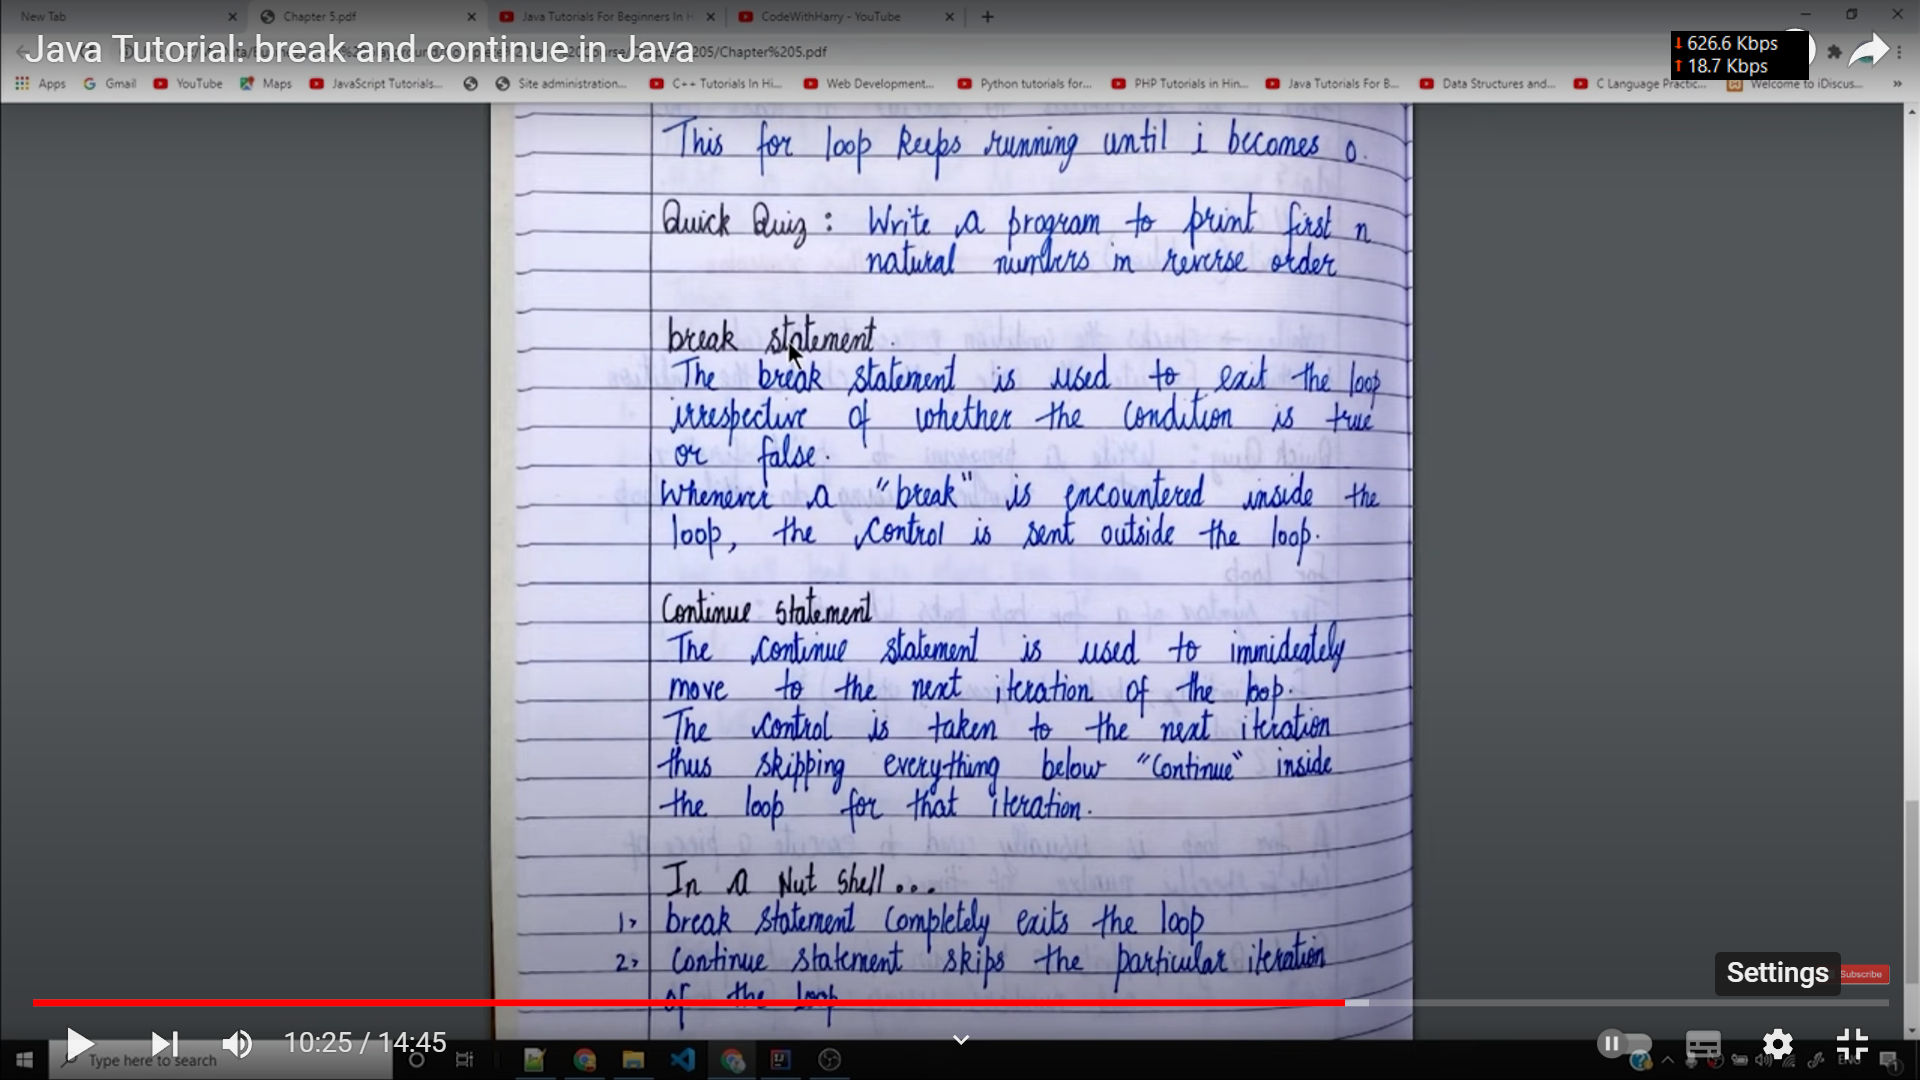 New Tab
Chapter 5.pdf
Java Tutorials For Beginners In H
CodeWithHarry - YouTube
Java Tutorial: break and continue in Java
/Chapter%205.pdf
626.6 Kbps
18.7 Kbps
Apps
Gmail
YouTube
Maps
JavaScript Tutorials...
Site administration...
C++ Tutorials In Hi...
Web Development...
Python tutorials for...
PHP Tutorials in Hin...
Java Tutorials For B...
Data Structures and...
C Language Practic...
Welcome to iDiscus...
This for loop keeps running until i becomes 0.
Quick Quiz : Write a program to print first n
natural numbers in reverse order
break statement.
The break statement is used to exit the loop
irrespective of whether the condition is true
or false.
Whenever a "break" is encountered inside the
loop, the control is sent outside the loop.
Continue statement
The continue statement is used to immideately
move to the next iteration of the loop.
The control is taken to the next iteration
thus skipping everything below "continue" inside
the loop for that iteration.
In a Nut Shell...
1> break statement completely exits the loop
2> Continue statement skips the particular iteration
of the loop
Settings
Subscribe
10:25 / 14:45
Type here to search